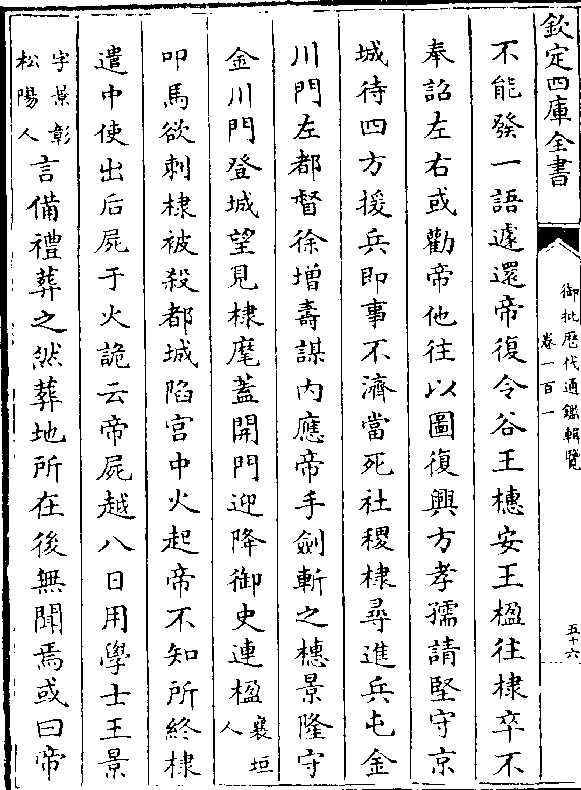 欽定四庫全書
御批歷代通鑑輯覽
卷一百一
五十六
不能發一語遽還帝復令谷王橞安王楹往棣卒不
奉詔左右或勸帝他往以圖復興方孝孺請堅守京
城待四方援兵即事不濟當死社稷棣尋進兵屯金
川門左都督徐增壽謀内應帝手劍斬之橞景隆守
金川門登城望見棣麾蓋開門迎降御史連楹襄垣人
叩馬欲刺棣被殺都城陷宮中火起帝不知所終棣
遣中使出后屍于火詭云帝屍越八日用學士王景
字景彰松陽人言備禮葬之然葬地所在後無聞焉或曰帝